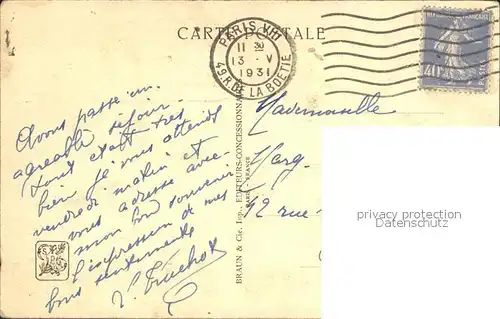 CARTE POSTALE
PARIS VIII
11 30
13 - V
1931
49.R.DE LA BOETIE
REPUBLIQUE FRANÇAISE
40
Avons passé un
agréable séjour.
tout était très
bien je vous attends
vendredi matin et
vous adresse avec
mon bon souvenir
l'expression de mes
bons sentiments
Mademoiselle
Marg
42 rue
BRAUN & Cie, Imp., EDITEURS-CONCESSIONNA
PARIS - FRANCE
privacy protection
Datenschutz